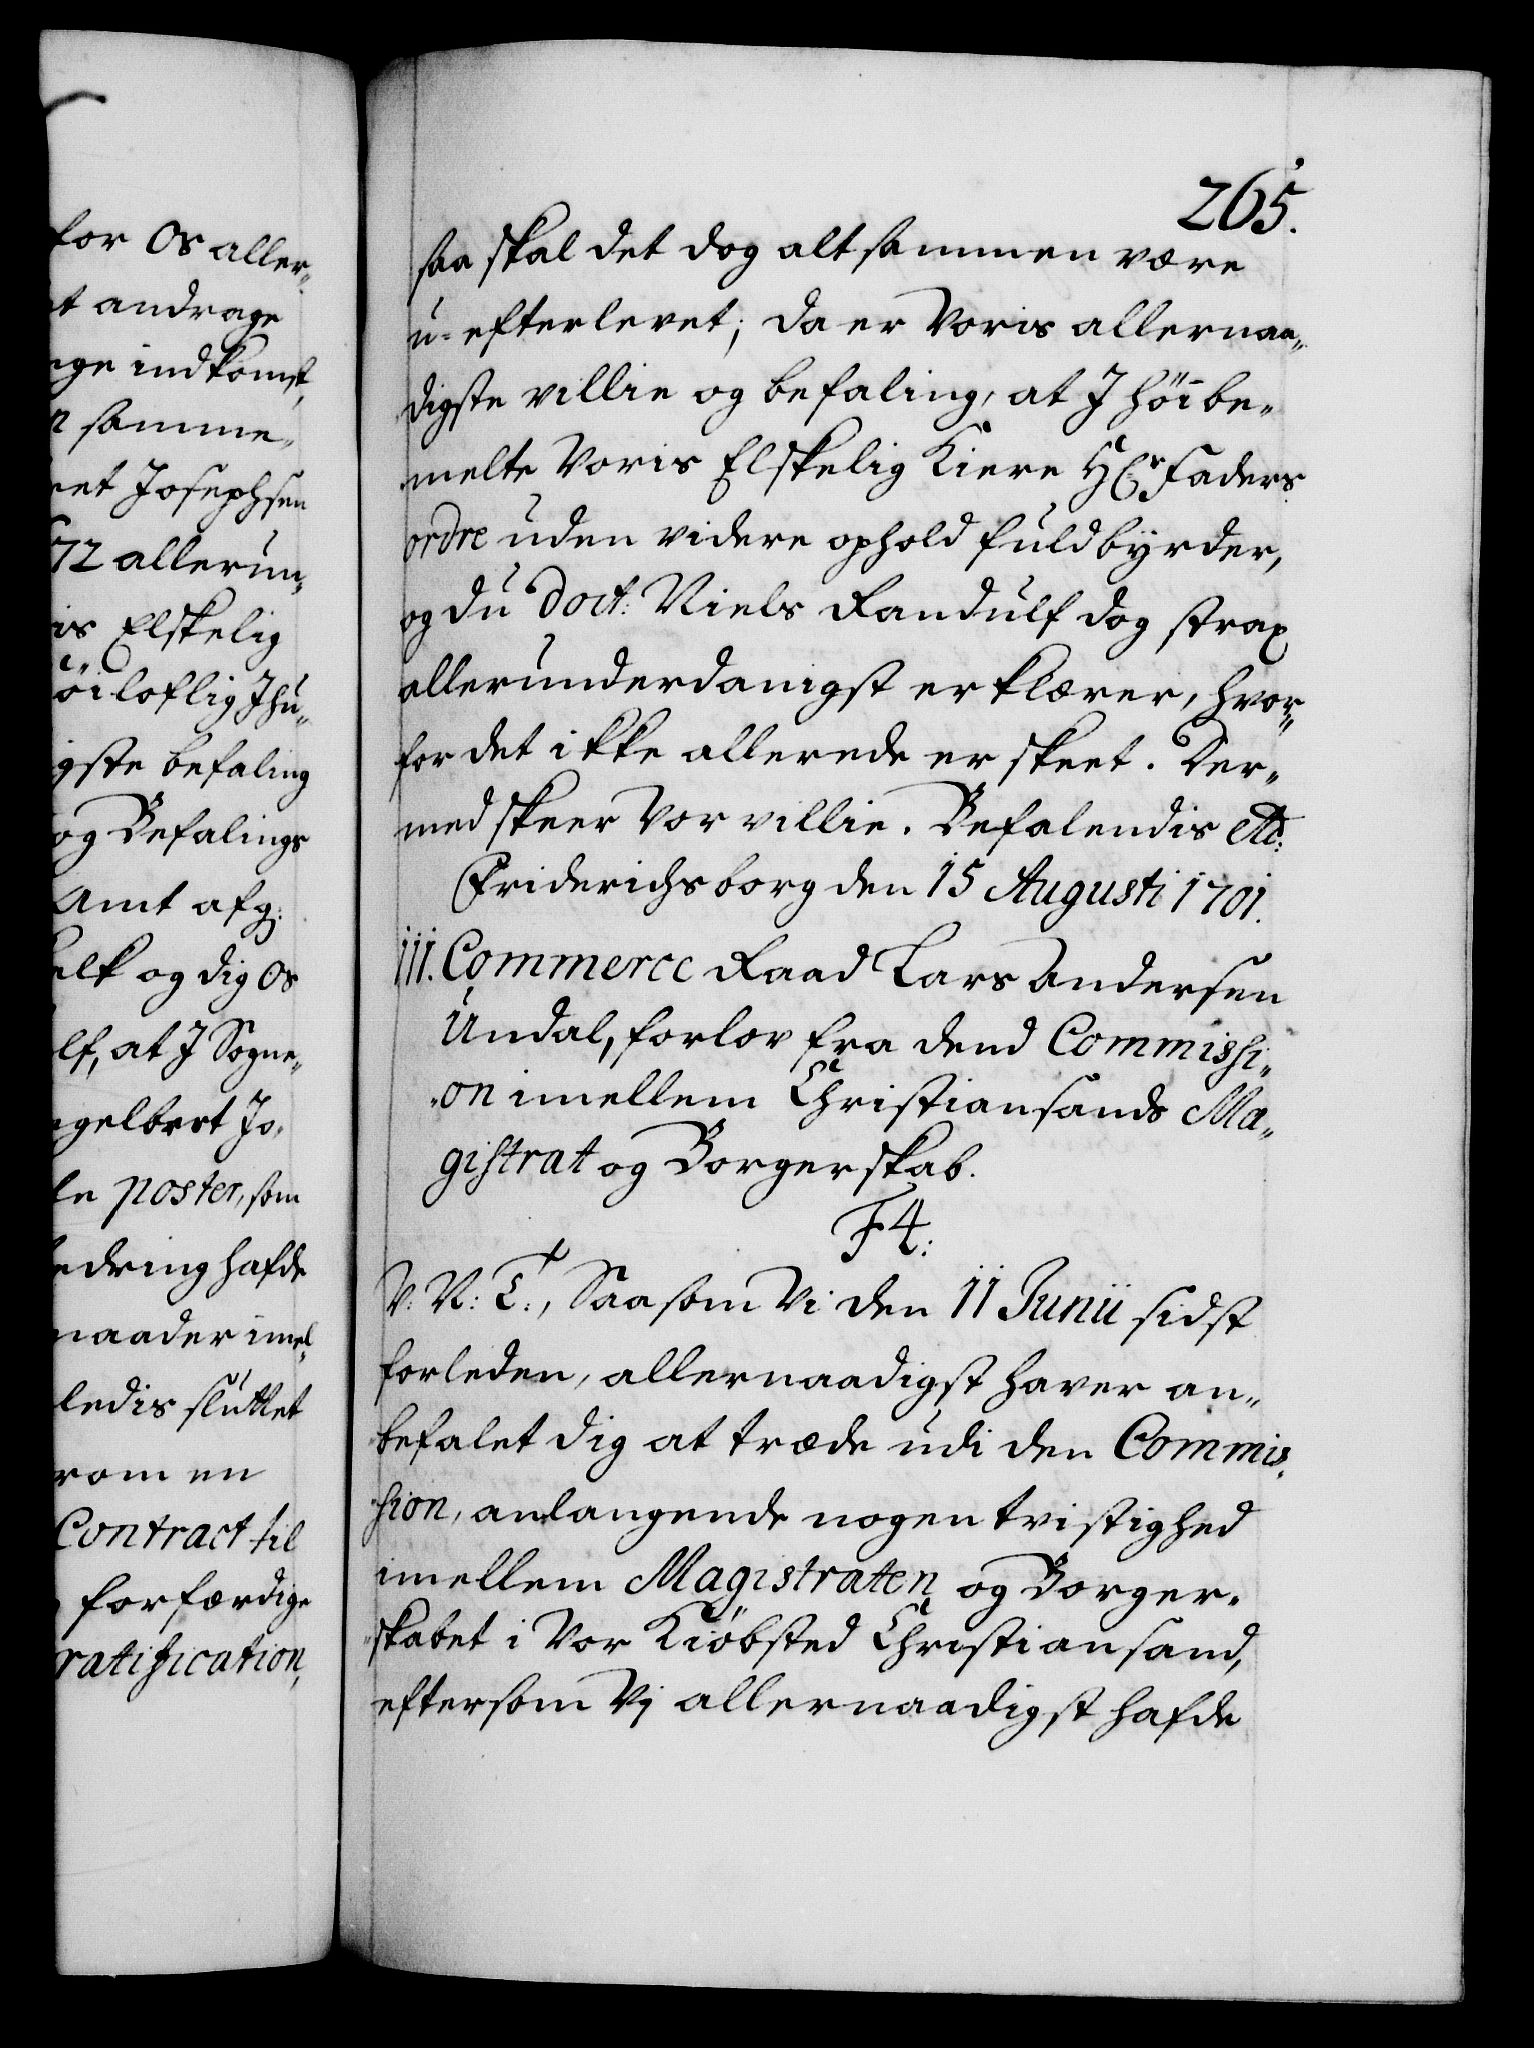 for Os aller-
et andrage
ge indkomst,
samme,
et Josephsen
72 allerun-
is Elskelig
öiloflig Ihu-
igste befaling
og Befalings
Amt afg:
og dig Os
lf, at J Sogne-
ngelbret Jo-
le poster, som
edring hafde
naader imel-
ledis sluttet
rom en
Contract til
forfærdige
ratification,
265.
saa skal det dog alt sammen være
u-efterlevet; da er Voris allernaa-
digste villie og befaling, at J höibe-
melte Voris Elskelig Kiere Hr Faders
ordre uden videre ophold fuldbyrder,
og du Doct: Niels Randulf dog strax
allerunderdanigst erklærer, hvor-
for det ikke allerede er skeet. Der-
med skeer Vor villie. Befalendis etc:
Friderichsborg den 15 Augusti 1701.
111. Commerce Raad Lars Andersen
Undal, forlov fra dend Commissi-
on imellem Christiansands Ma-
gistrat og Borgerskab.
F4:
V: N: T:, Saasom Vi den 11 Junii sidst
forleden, allernaadigst haver an-
befalet dig at træde udi den Commis-
sion, anlangende nogen tvistighed
imellem Magistraten og Borger-
skabet i Vor Kiöbsted Christiansand,
eftersom Vj allernaadigst hafde